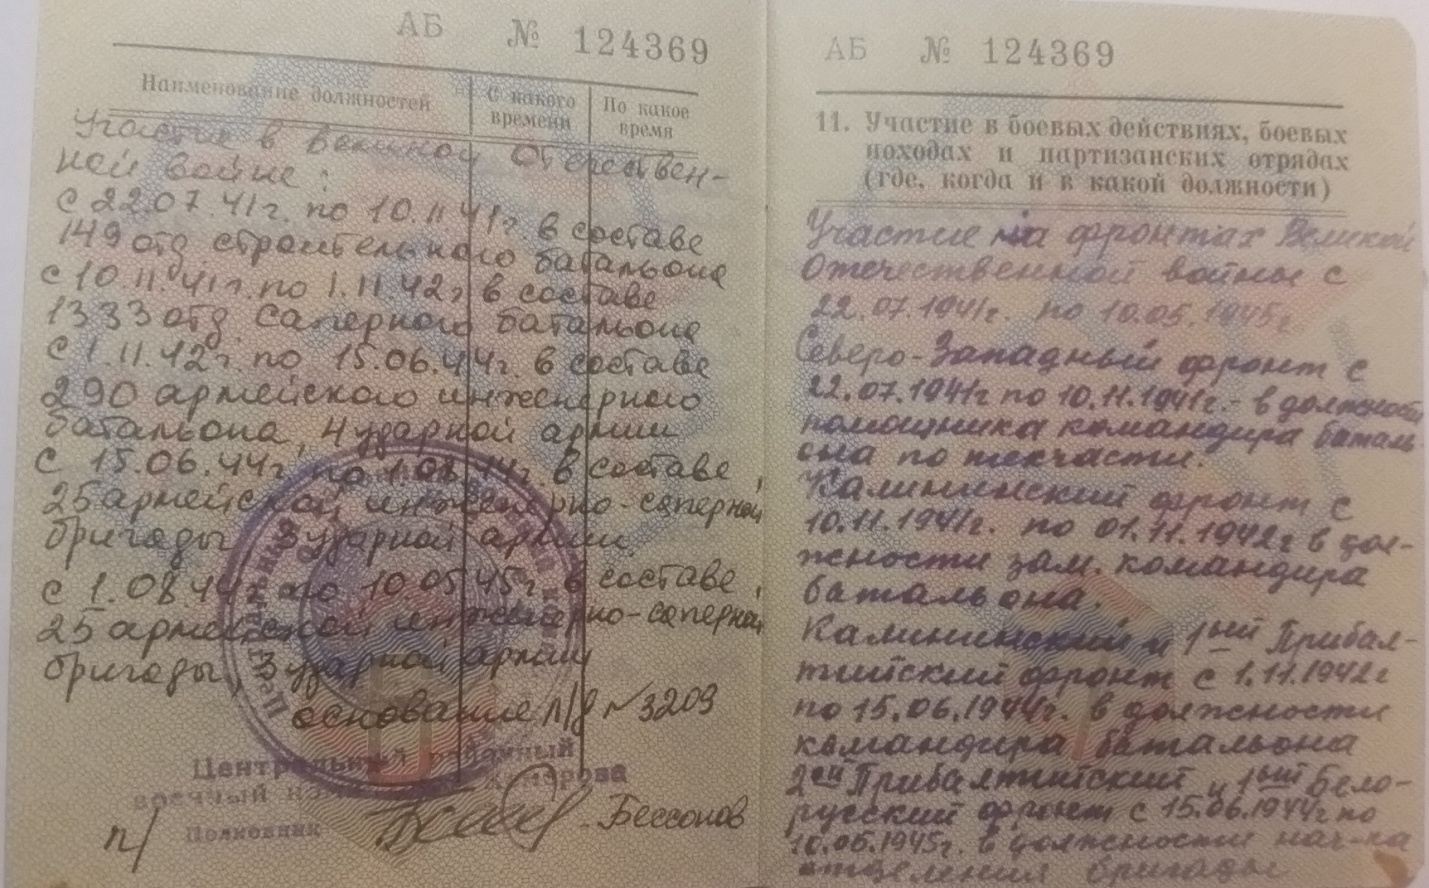 АБ № 124369
Наименование должностей
С какого времени
По какое время
Участие в Великой Отечествен-
ной войне:
с 22.07.41г. по 10.11.41г. в составе
149 отд. строительного батальона
с 10.11.41г. по 1.11.42г. в составе
1333 отд. саперного батальона
с 1.11.42г. по 15.06.44г. в составе
290 армейского инженерного
батальона, 4 ударной армии
с 15.06.44г. по 1.08.44г. в составе,
25 армейской инженерно-саперной
бригады 3 ударной армии.
с 1.08.44г. по 10.05.45г. в составе,
25 армейской инженерно-саперной
бригады, 3 ударной армии
основание л/д № 3209
Центральный районный
военный
Полковник
п/ Бессонов
АБ № 124369
11. Участие в боевых действиях, боевых
походах и партизанских отрядах
(где, когда и в какой должности)
Участие на фронтах Великой
Отечественной войны с
22.07.1941г. по 10.05.1945г
Северо-Западный фронт с
22.07.1941г по 10.11.1941г. - в должности
помощника командира баталь-
она по техчасти.
Калининский фронт с
10.11.1941г. по 01.11.1942г в дол-
жности зам. командира
батальона.
Калининский и 1ый Прибал-
тийский фронт с 1.11.1942г
по 15.06.1944г. в должности
командира батальона
2ой Прибалтийский и 1ый Бело-
русский фронт с 15.06.1944г по
10.05.1945г. в должности нач-ка
отделения бригады